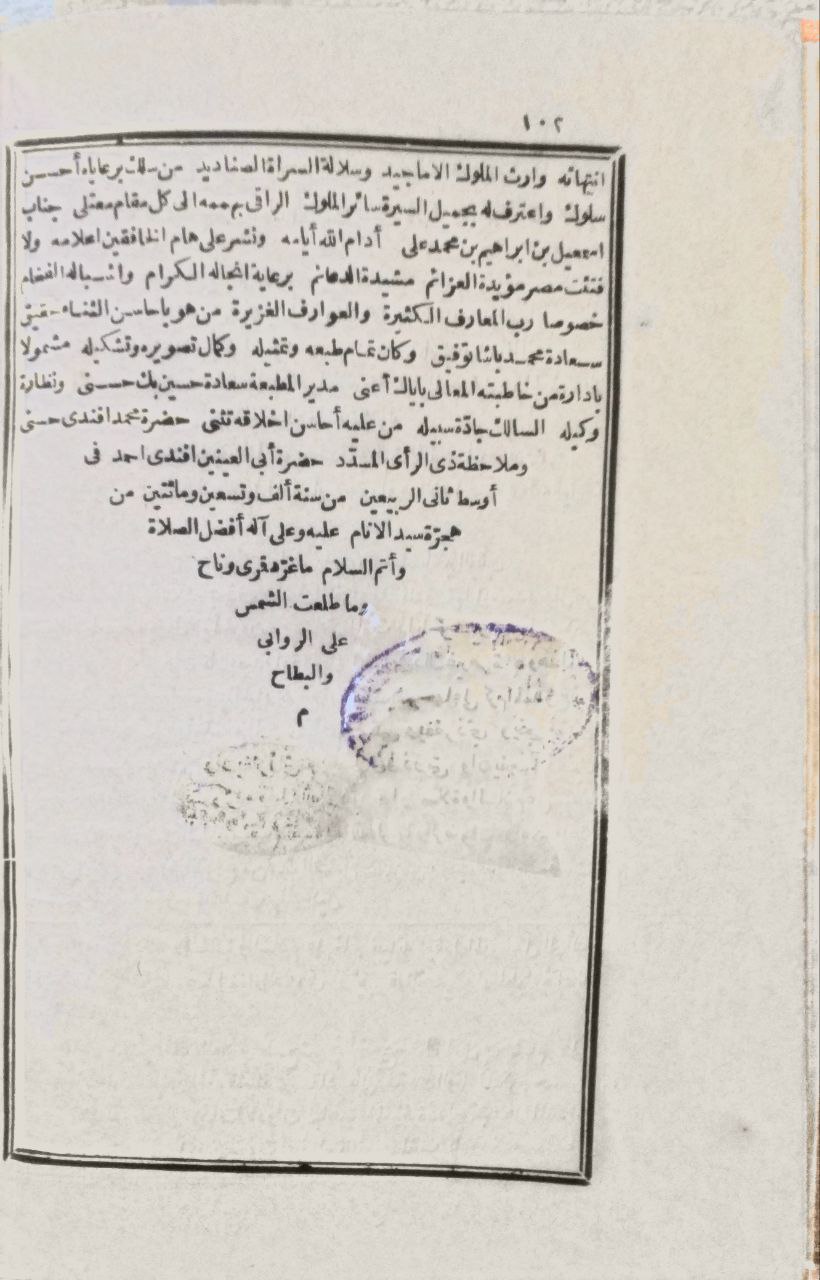 ١٠٢
انتهائه وارث الملوك الاماجيد وسلالة السراة الصناديد من سلك برعاياه أحسن
سلوك واعترف له بجميل السيرة سائر الملوك الراقى بهممه الى كل مقام معتلى جناب
اسمعيل بن ابراهيم بن محمد على أدام الله أيامه ونشر على هام الخافقين اعلامه ولا
فتئت مصر مؤيدة العزائم مشيدة الدعائم برعاية انجاله الكرام واشباله الفخام
خصوصا رب المعارف الكثيرة والعوارف الغزيرة من هو با حاسن الثناء حقيق
سعادة محمد باشا توفيق وكان تمام طبعه وتمثيله وكمال تصويره وتشكيله مشمولا
بادارة من خاطبته المعالى باياك أعنى مدير المطبعة سعادة حسين بك حسنى ونظارة
وكيله السالك جادّة سبيله من عليه أحاسن اخلاقه تثنى حضرة محمد افندى حسنى
وملاحظة ذى الرأى المسدّد حضرة أبى العينين افندى احمد فى
أوسط ثانى الربيعين من سنة ألف وتسعين ومائتين من
هجرة سيد الانام عليه وعلى آله أفضل الصلاة
وأتم السلام ما غرّد قمرى وناح
وما طلعت الشمس
على الروابى
والبطاح
م